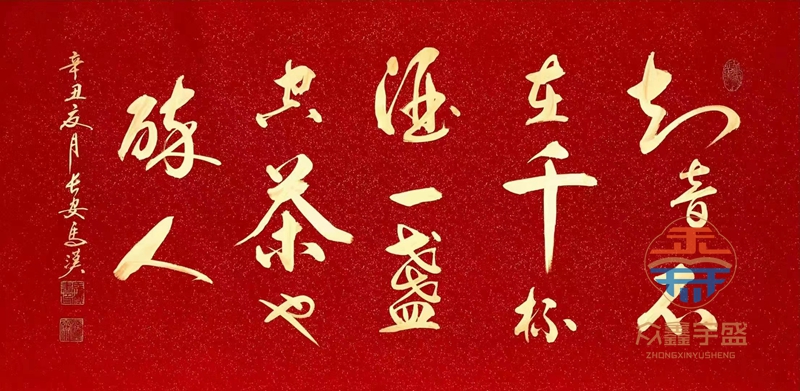 知音不
在千杯
酒一盏
空茶也
醉人
辛丑夏月长安马
众鑫宇盛
ZHONGXINYUSHENG